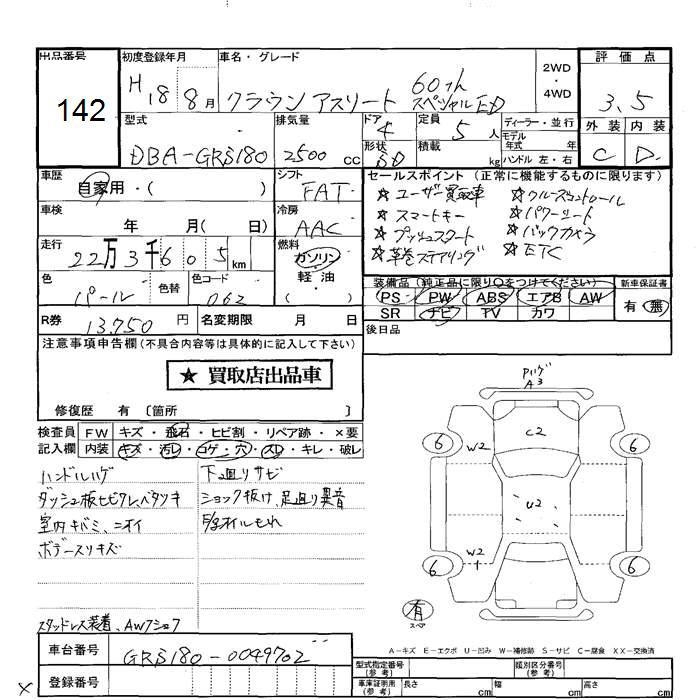 出品番号 初度登録年月 車名・グレード 評価点
142
H 18 8月 クラウン アスリート 60th スペシャルED
2WD
・
4WD
3.5
型式 排気量 ドア 定員 ディーラー・並行 外装 内装
DBA-GRS180 2500 cc 4 5 人 モデル年式 年式
形状 SD 積載 kg ハンドル 左・右 C D
車歴 シフト セールスポイント (正常に機能するものに限ります)
自家用・( ) FAT
☆ ユーザー買取車 ☆ クルーズコントロール
車検 冷房 ☆ スマートキー ☆ パワーシート
年 月( 日) AAC ☆ プッシュスタート ☆ バックカメラ
走行 燃料 ☆ 革巻ステアリング ☆ ETC
22万3千605km ガソリン
軽油
・( )
色 色替 色コード 装備品 (純正品に限り○をつけてください) 新車保証書
パール 062 PS PW ABS エアB AW 有・無
SR ナビ TV カワ
R券 13,750 円 名変期限 月 日 後日品
注意事項申告欄(不具合内容等は具体的に記入して下さい)
★ 買取店出品車
修復歴 有 〔箇所 〕
検査員 FW キズ・飛石・ヒビ割・リペア跡・×要
記入欄 内装 キズ・汚レ・コゲ・穴・スレ・キレ・破レ
ハンドルハゲ 下回りサビ
ダッシュ板ヒビワレ、ベタツキ ショック抜け、足回り異音
室内キバミ、ニオイ
ボデースリキズ
スタッドレス装着、AWフショク
A3
C2
6 W2 6
U2
W2
1
6 6
有
スペア
A-キズ E-エクボ U-凹み W-補修跡 S-サビ C-腐食 XX-交換済
車台番号 GRS180-0049702
登録番号
型式指定番号(参考) 類別区分番号(参考)
車庫証明用(参考) 長さ cm 幅 cm 高さ cm
×